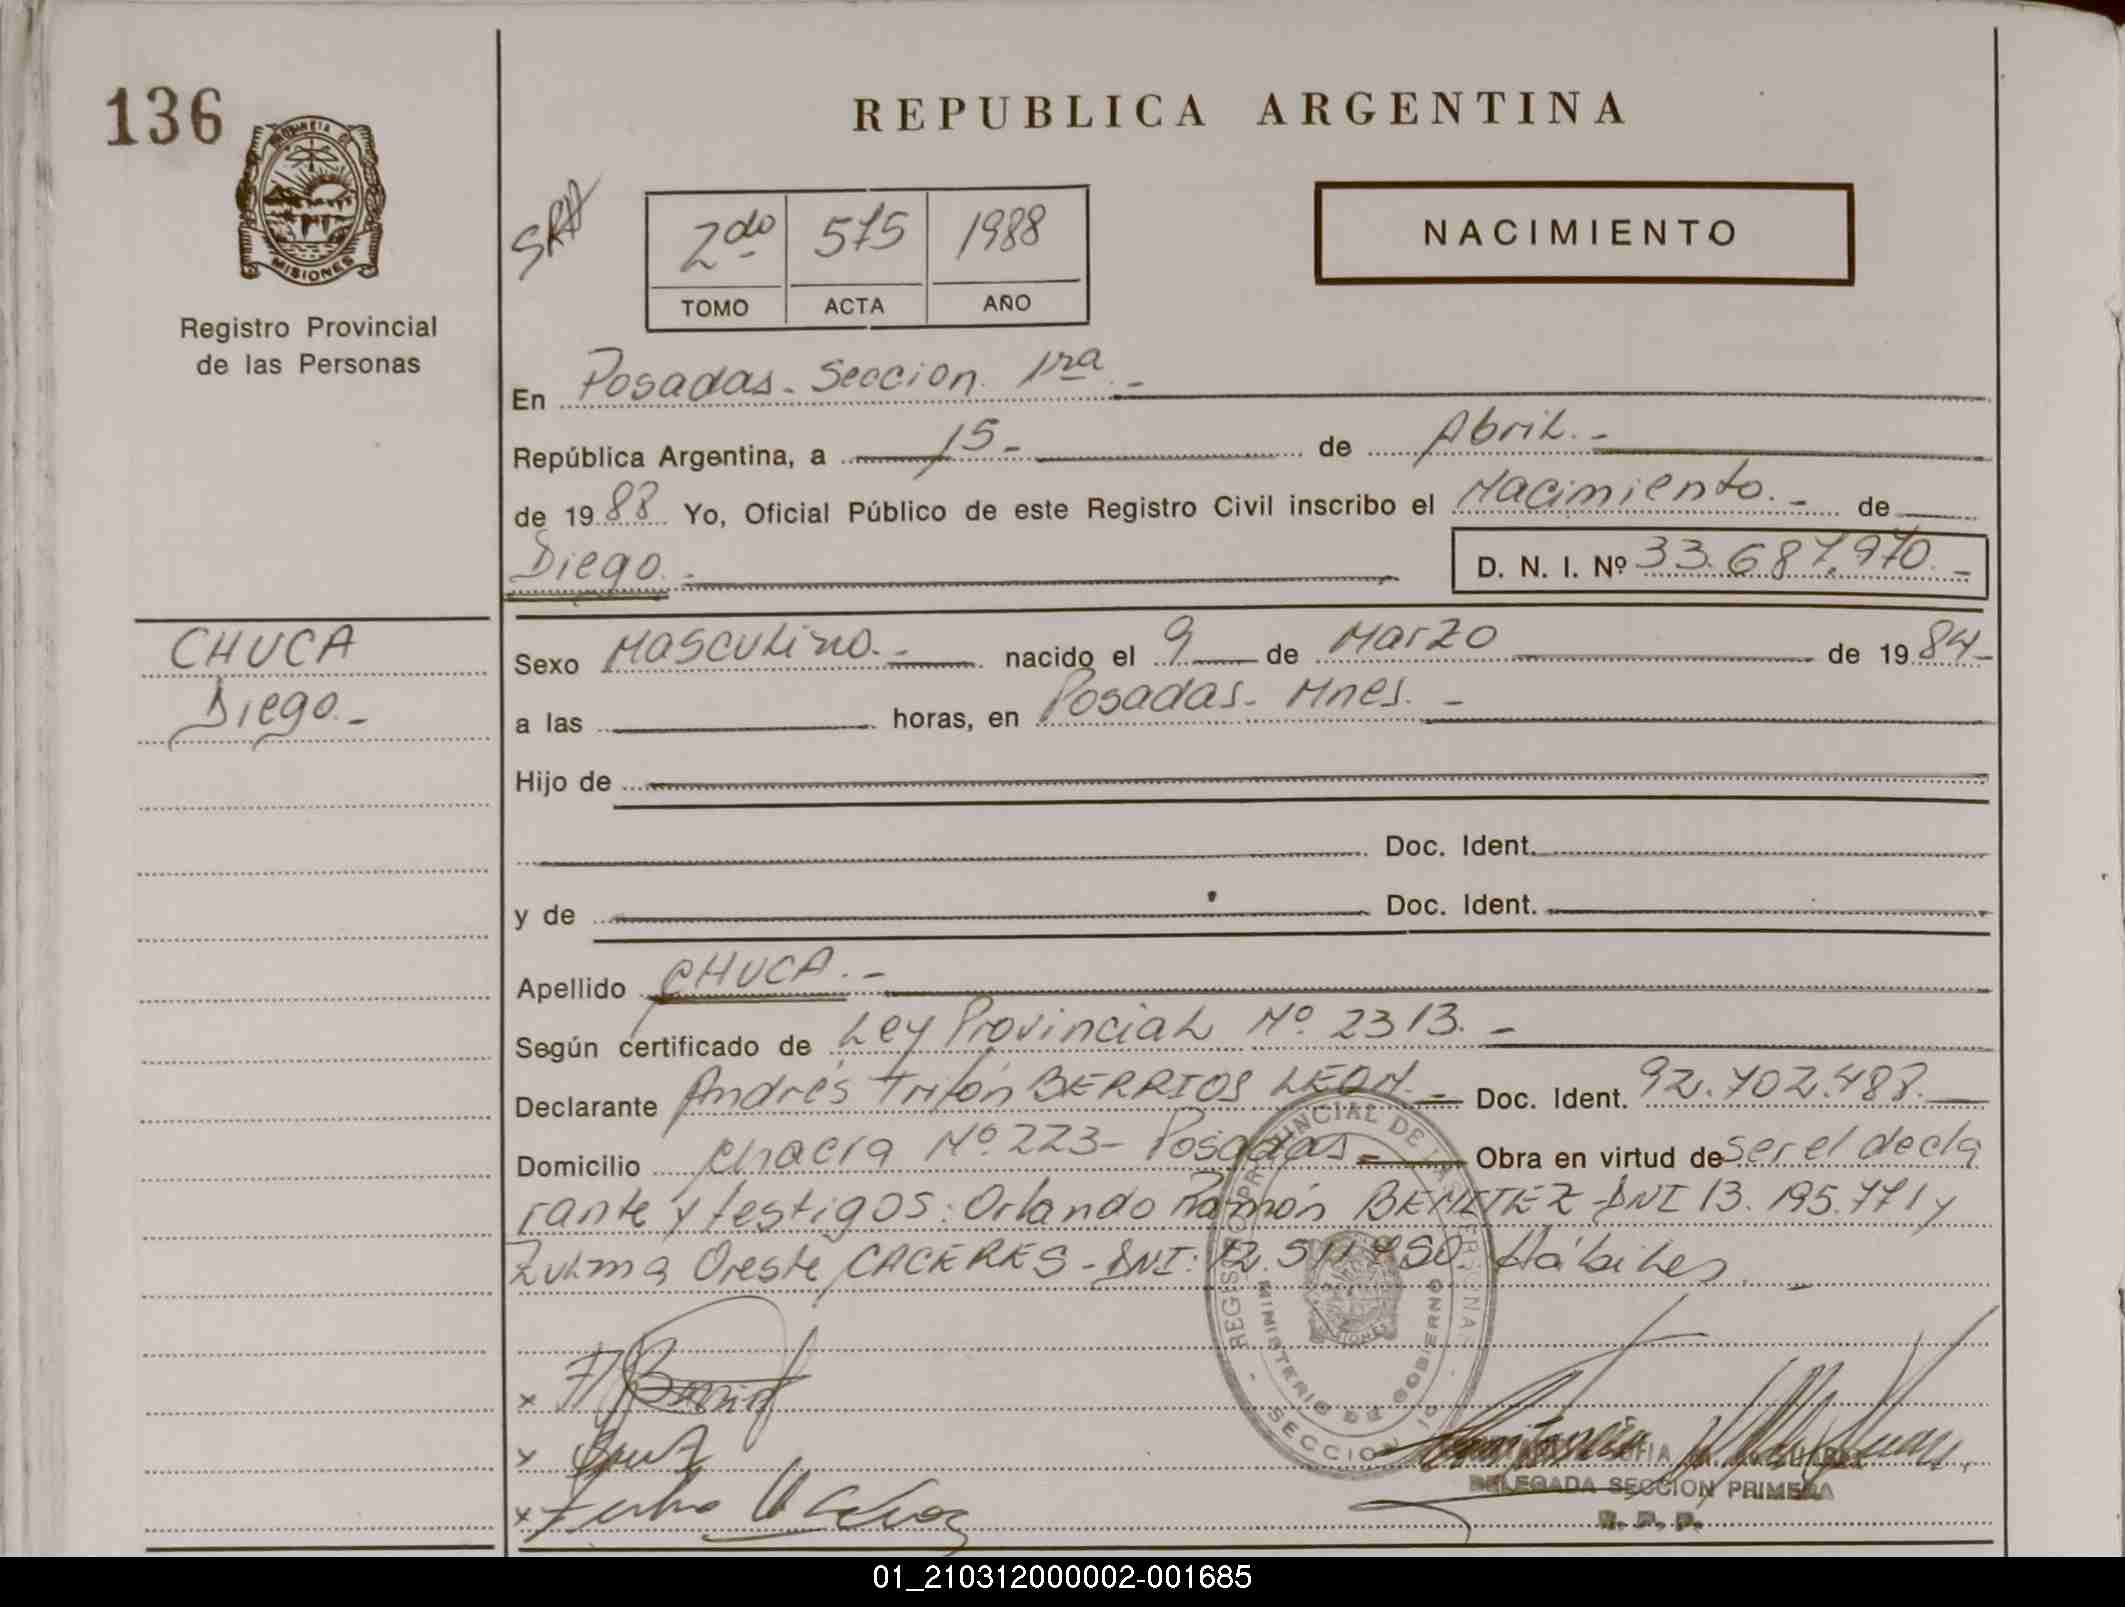 136
PROVINCIA DE
MISIONES
Registro Provincial
de las Personas
REPUBLICA ARGENTINA
NACIMIENTO
2do 575 1988
TOMO ACTA AÑO
En Posadas - Seccion 1ra. -
República Argentina, a 15 - de Abril. -
de 1988 Yo, Oficial Público de este Registro Civil inscribo el Nacimiento. - de
Diego. - D. N. I. Nº 33.687.970. -
CHUCA
Diego. -
Sexo Masculino. - nacido el 9 de Marzo de 1984 -
a las horas, en Posadas - Mnes. -
Hijo de
Doc. Ident.
y de Doc. Ident.
Apellido CHUCA. -
Según certificado de Ley Provincial Nº 2313. -
Declarante Andrés Trifón BERRIOS LEON. - Doc. Ident. 92.702.488.
Domicilio Chacra Nº 223 - Posadas - Obra en virtud de ser el decla
rante y testigos: Orlando Ramón BENITEZ - DNI 13.195.771 y
Zulma Oreste CACERES - DNI: 12. Hábiles. -
REGISTRO PROVINCIAL DE LAS PERSONAS
MINISTERIO DE GOBIERNO
MISIONES
SECCION 1ra
x
x
x
DELEGADA SECCION PRIMERA
R. P. P.
01_210312000002-001685